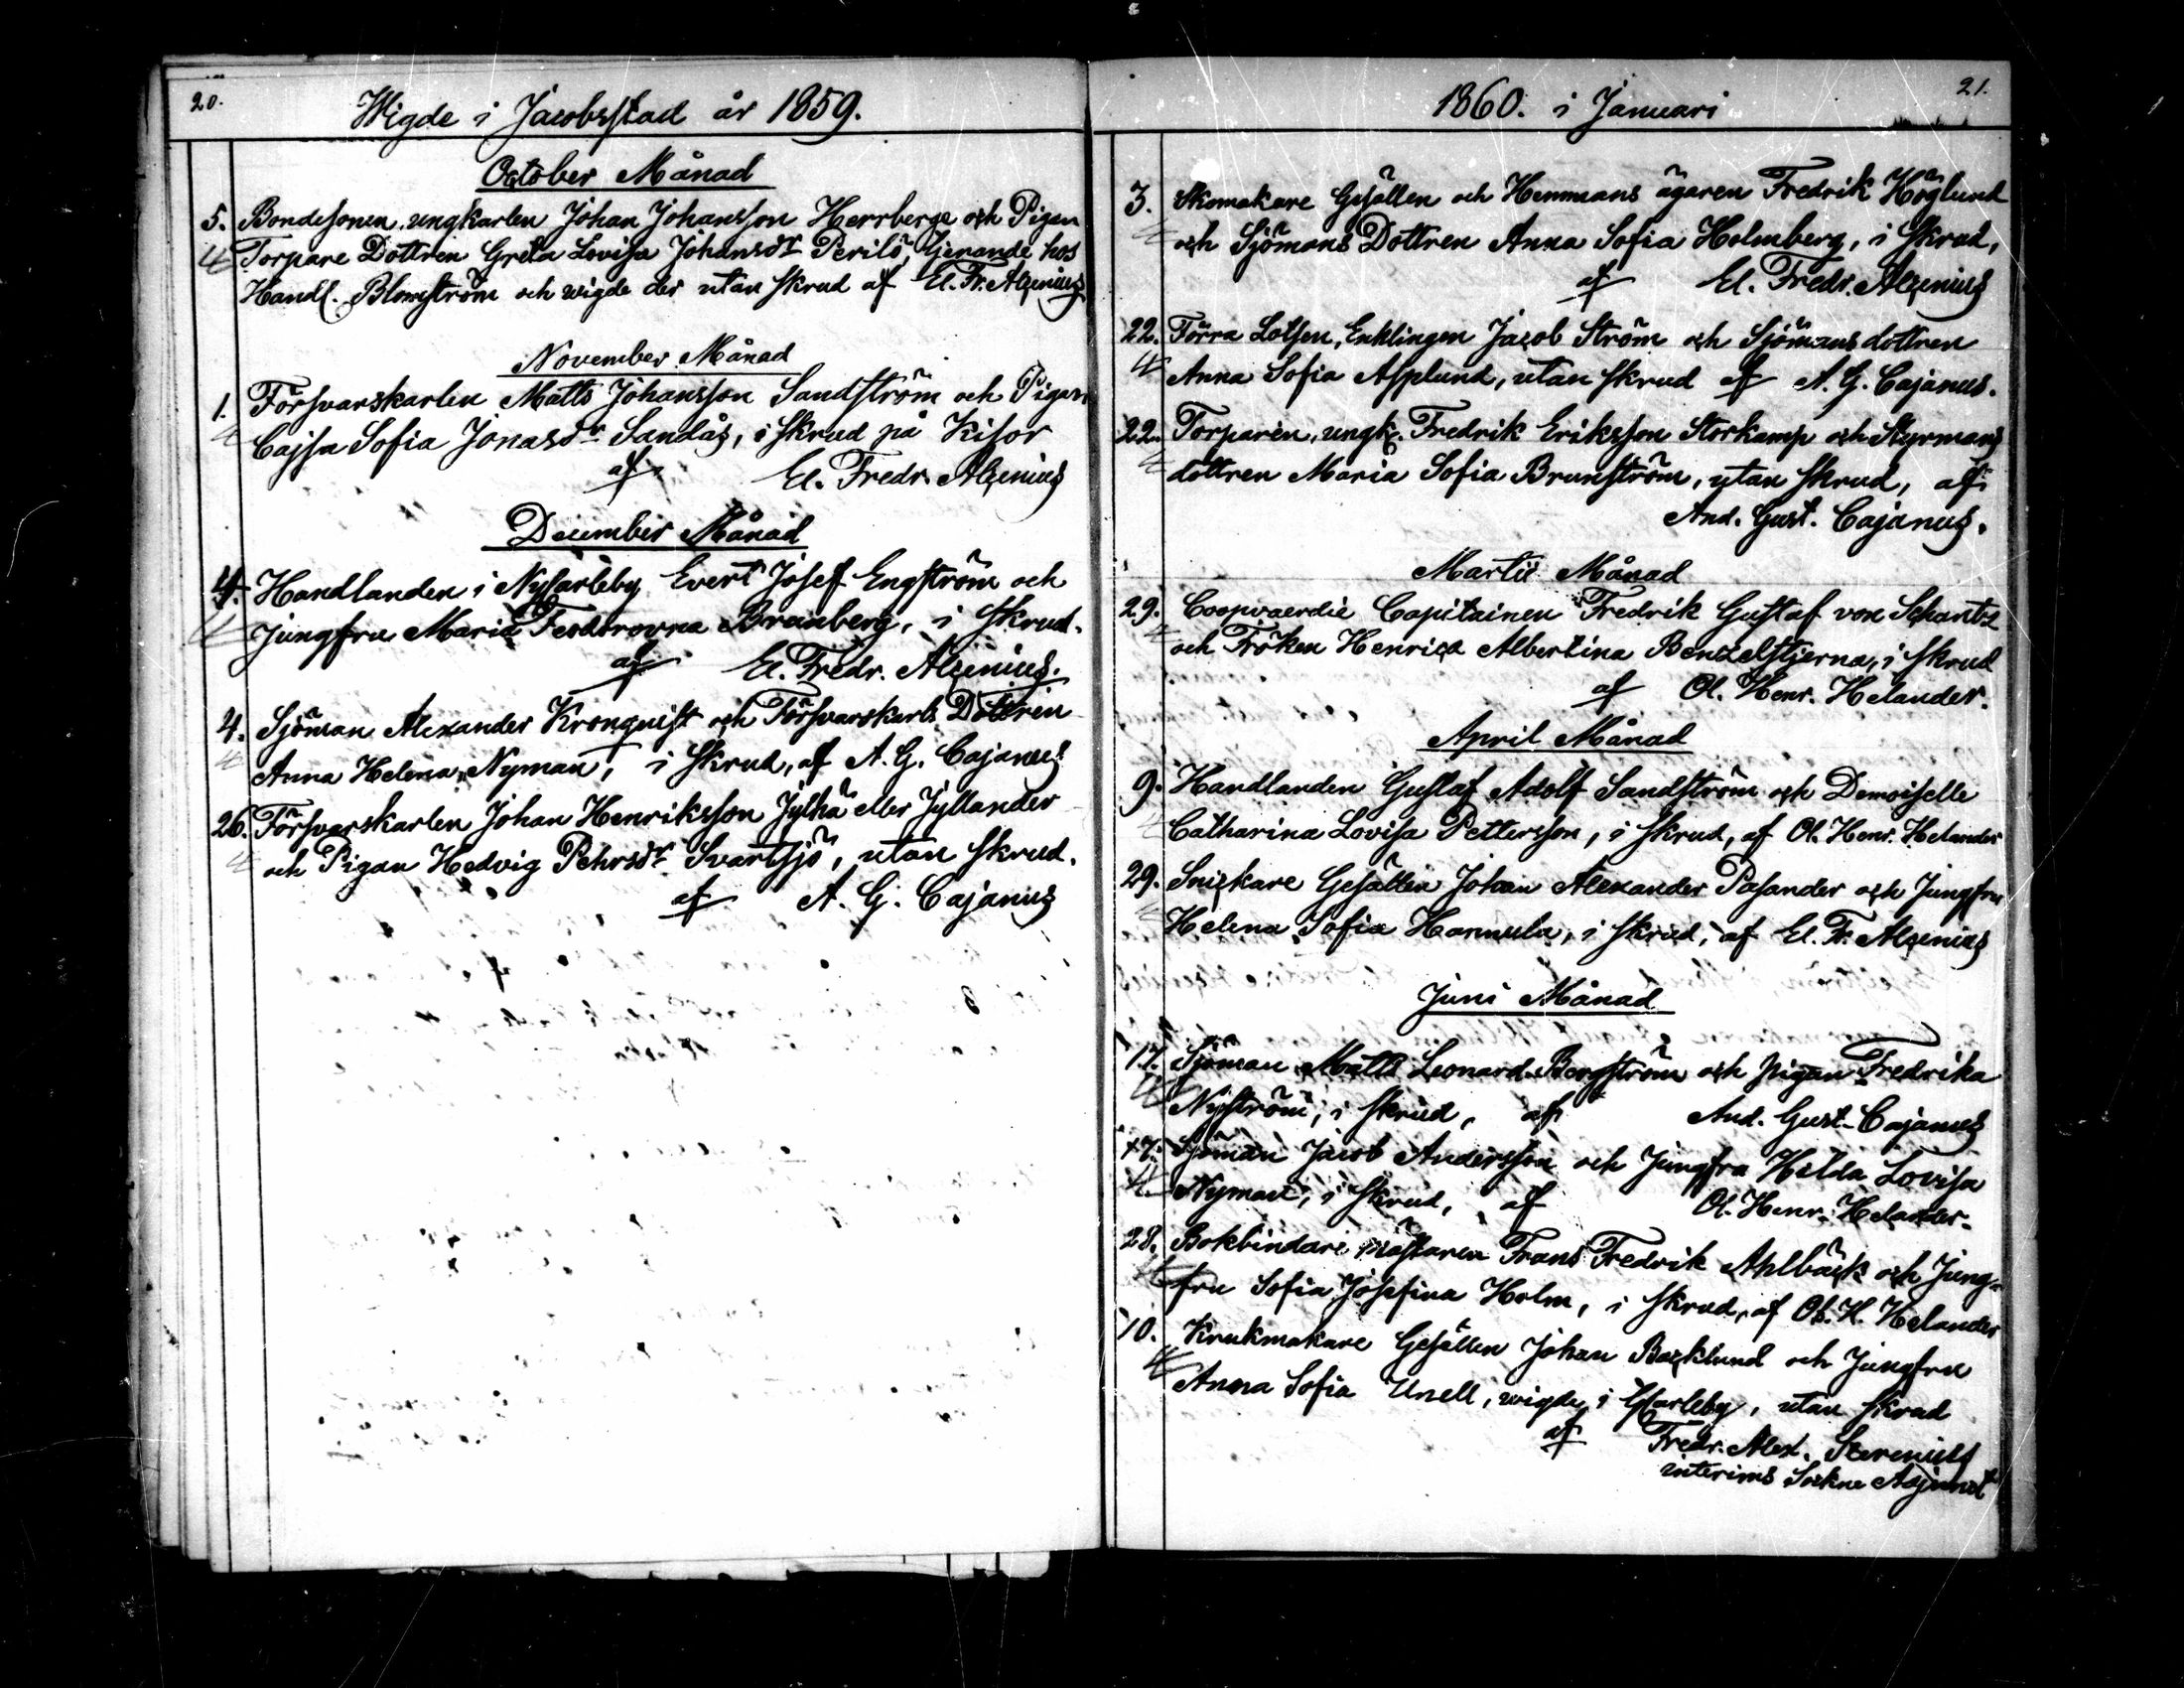 20.
Wigde i Jacobsstad år 1859.
October Månad
5. Bondesonen, ungkarlen Johan Johansson Herrberge och Pigan
Torpare Dottren Greta Lovisa Johansdr Perilö, tjenande hos
Handl. Blomström och wigde der utan skrud af El. Fr. Alcenius
November Månad
1. Försvarskarlen Matts Johansson Sandström och Pigan
Cajsa Sofia Jonasdr Sandås, i skrud på Kisor
af El. Fredr. Alcenius
December Månad
4. Handlanden i Nycarleby Evert Josef Engström och
Jungfru Maria Feodorovna Bremberg, i skrud.
af El. Fredr. Alcenius.
4. Sjöman Alexander Kronquist och Försvarskarls Dottren
Anna Helena Nyman, i skrud, af A. G. Cajanus
26. Försvarskarlen Johan Henriksson Jylhä eller Jyllander
och Pigan Hedvig Pehrsdr Svartsjö, utan skrud.
af A. G. Cajanus
21.
1860. i Januari
3. Skomakare Gesällen och Hemmans ägaren Fredrik Höglund
och Sjömans Dottren Anna Sofia Holmberg, i skrud,
af El. Fredr. Alcenius
22. Förra Lotsen, Enklingen Jacob Ström och Sjömansdottren
Anna Sofia Asplund, utan skrud af A. G. Cajanus.
22. Torparen, ungk. Fredrik Eriksson Storkamp och Styrmans
dottren Maria Sofia Brunström, utan skrud, af
And. Gust. Cajanus.
Martii Månad
29. Coopvaerdie Capitainen Fredrik Gustaf von Schantz
och Fröken Henrica Albertina Benzelstjerna, i skrud
af Ol. Henr. Helander.
April Månad
9. Handlanden Gustaf Adolf Sandström och Demoiselle
Catharina Lovisa Pettersson, i skrud, af Ol. Henr. Helander
29. Snickare Gesällen Johan Alexander Pasander och Jungfru
Helena Sofia Hannula, i skrud, af El. Fr. Alcenius
Juni Månad
17. Sjöman Matts Leonard Bergström och pigan Fredrika
Nyström, i skrud, af And. Gust. Cajanus
17. Sjöman Jacob Andersson och Jungfru Hilda Lovisa
Nyman, i skrud, af Ol. Henr. Helander.
28. Bokbindare mästaren Frans Fredrik Ahlbäck och Jung-
fru Sofia Josefina Holm, i skrud, af Ol. H. Helander
10. Krukmakare Gesällen Johan Backlund och Jungfru
Anna Sofia Unell, wigde i Gcarleby, utan skrud
af Fredr. Alex. Sterenius
interims Sockne Adjunct